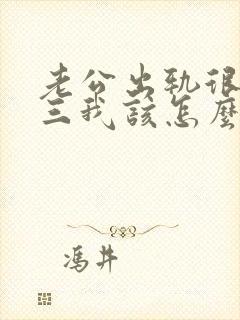 老公出轨很
三我该怎麼
冯井